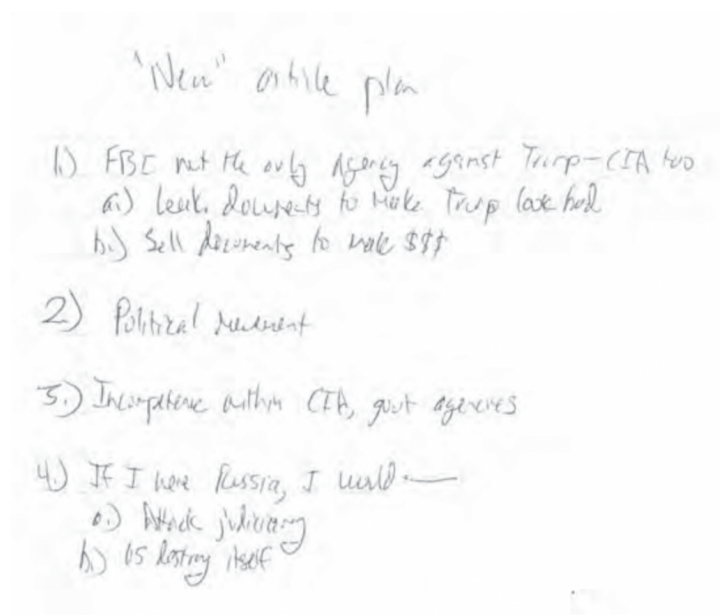 "New" article plan
1.) FBI not the only Agency against Trump - CIA too
a.) Leak documents to make Trump look bad
b.) Sell documents to make $$$
2.) Political movement
3.) Incompetence within CIA, govt agencies
4.) If I were Russia, I would -
a.) Attack judiciary
b.) US destroy itself